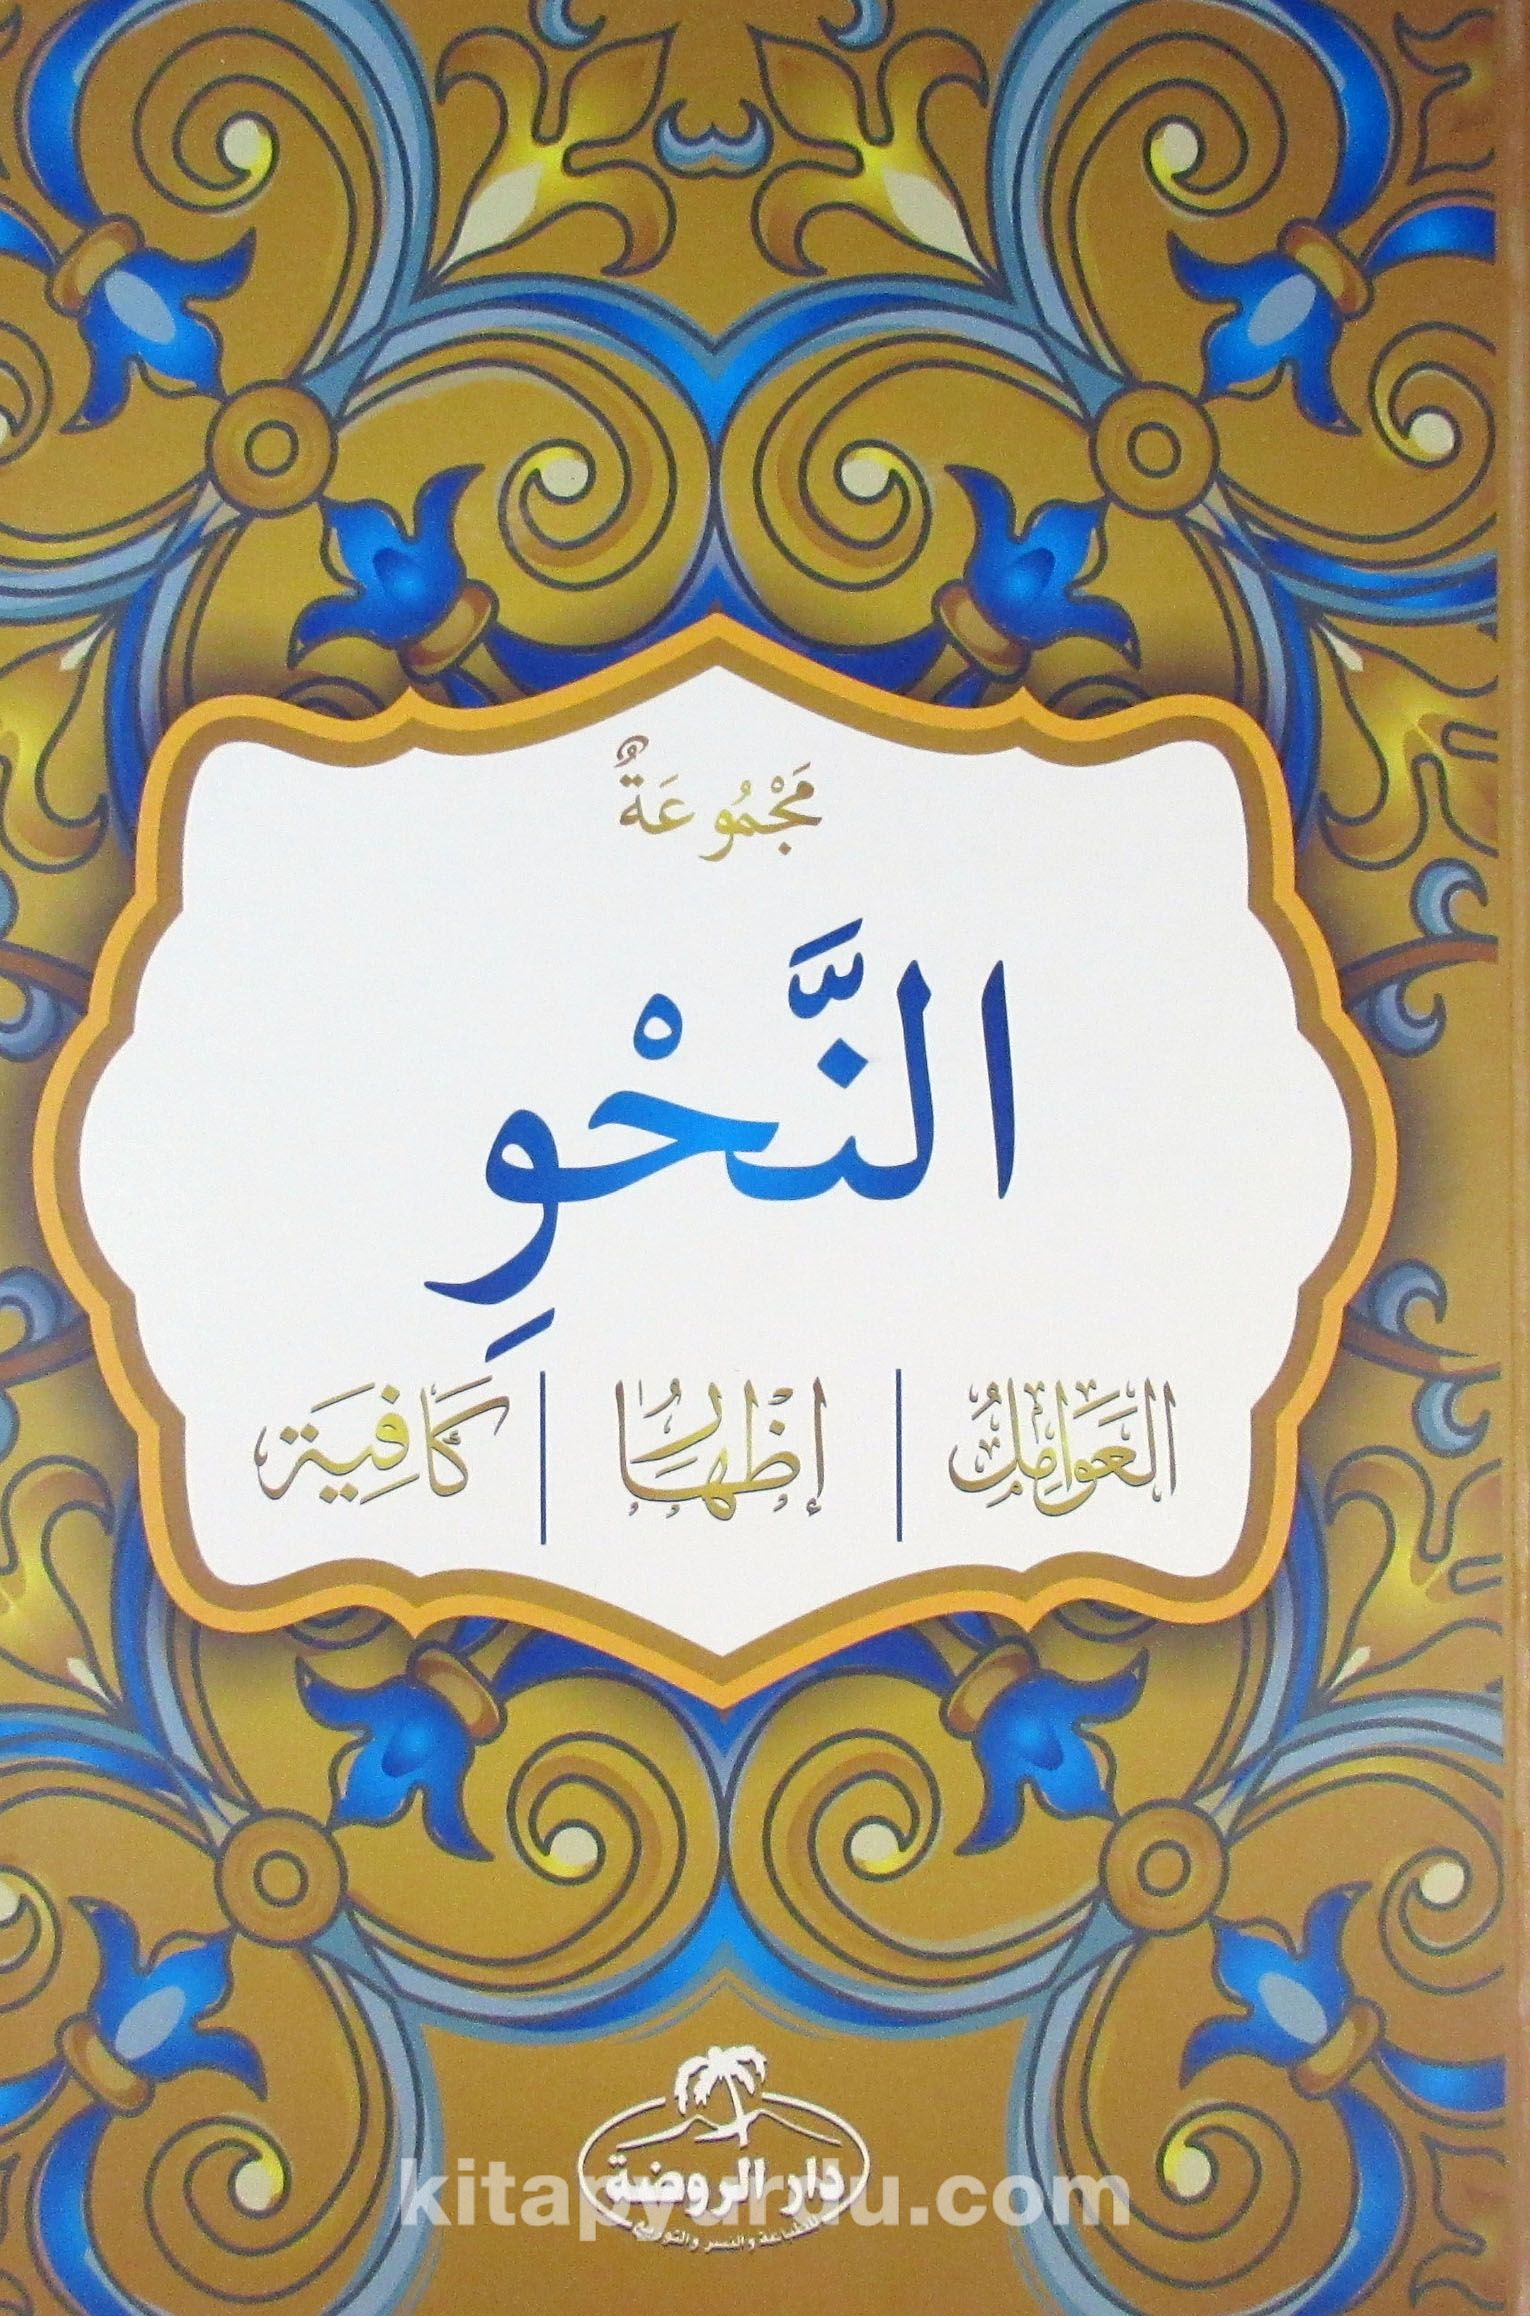 مَجْمُوعَةٌ
النَّحْوِ
العَوَامِلُ | إِظْهَارُ | كَافِيَة
دار الروضة
للطباعة والنشر والتوزيع
kitapyurdu.com